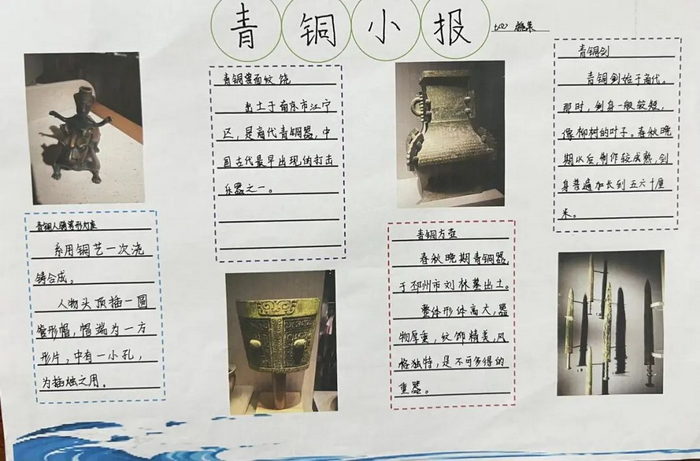 青铜小报
青铜兽面纹铙
出土于南京市江宁
区，是商代青铜器，中
国古代最早出现的打击
乐器之一。
青铜剑
青铜剑始于商代。
那时，剑身一般较短，
像柳树的叶子。春秋晚
期以后，制作较成熟，剑
身普遍加长到五六十厘
米。
青铜人骑兽形灯座
系用铜艺一次浇
铸合成。
人物头顶插一圆
管形帽，帽端为一方
形片，中有一小孔，
为插烛之用。
青铜方壶
春秋晚期青铜器，
于邳州市刘林墓出土。
整体形体高大，器
物厚重，纹饰精美，风
格独特，是不可多得的
重器。